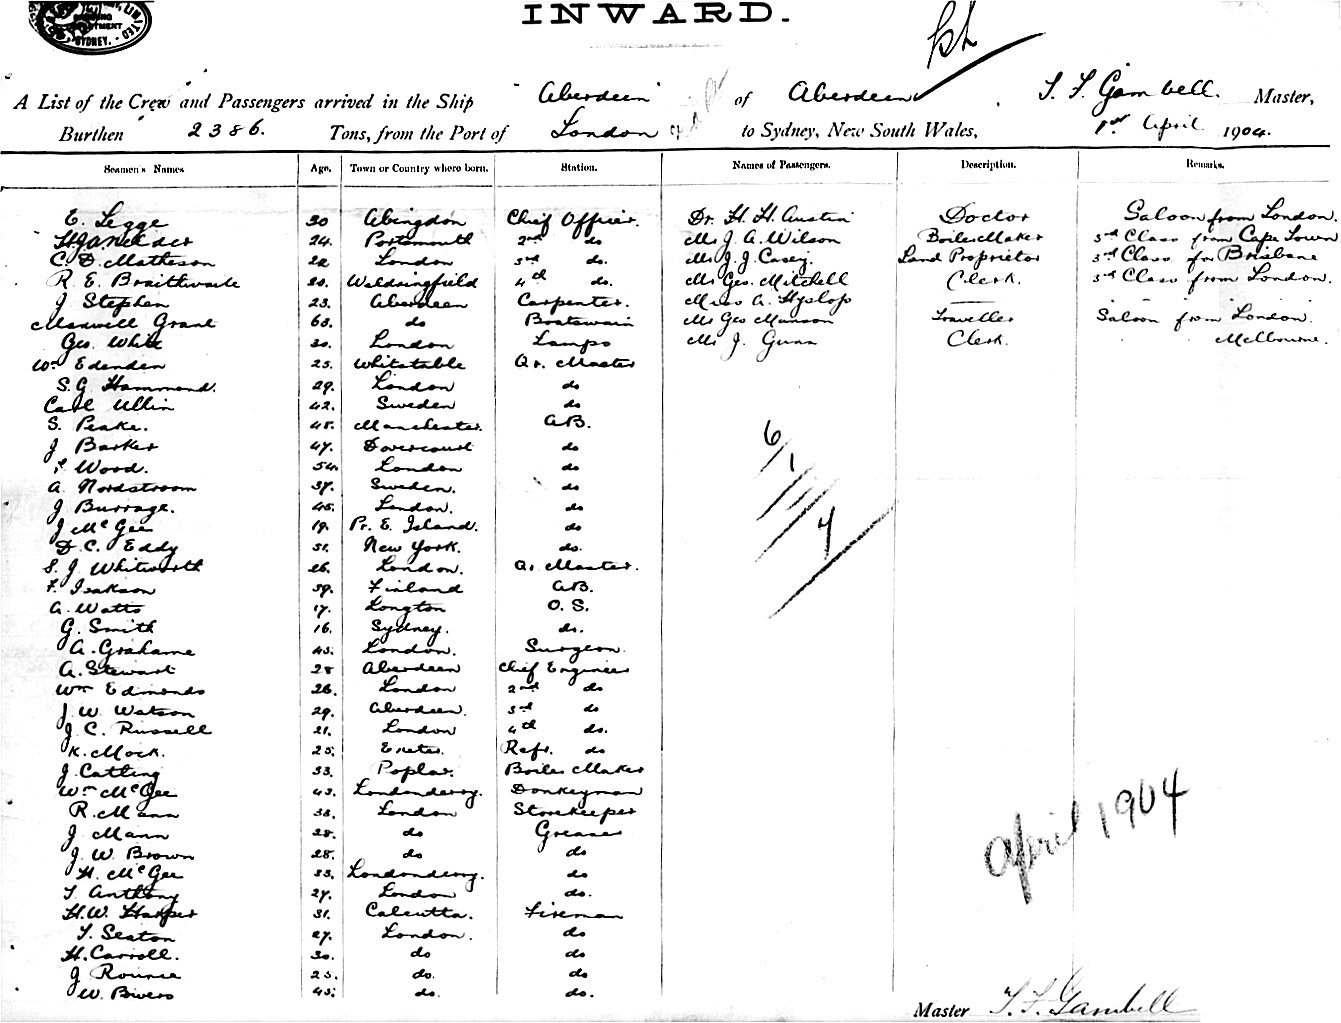 LIMITED
DEPARTMENT
SYDNEY.
INWARD.
A List of the Crew and Passengers arrived in the Ship "Aberdeen" of Aberdeen. T. F. Gambell. Master,
Burthen 2386. Tons, from the Port of London to Sydney, New South Wales, 1st April 1904.
Seamen's Names Age. Town or Country where born. Station. Names of Passengers. Description. Remarks.
E. Legge 30 Abingdon Chief Officer. Dr. H. H. Austin Doctor Saloon from London.
24. Portsmouth 2nd do Mr J. A. Wilson Boiler Maker 3rd Class from Cape Town
C. D. Matheson 22 London 3rd do. Mr J. J. Casey. Land Proprietor 3rd Class for Brisbane
R. E. Braithwaite 20. Waldringfield 4th do. Mr Geo. Mitchell Clerk. 3rd Class from London.
J. Stephen 23. Aberdeen Carpenter. Miss A. Hyslop
Maxwell Grant 63. do Boatswain Mr Geo Munson Traveller Saloon from London.
Geo. White 30. London Lamps Mr J. Gunn Clerk. " " Melbourne.
Wm Edenden 25. Whitstable Qr. Master
S. G. Hammond. 29. London do
Carl Ullin 42. Sweden do
S. Peake. 48. Manchester. A.B.
J Barker 47. Dovercourt do
Wood. 54. London do
A. Nordstroom 37. Sweden. do
J Burrage. 45. London. do
J McGee 19. Pr. E. Island. do
D. C. Eddy 51. New York. do.
S. J. Whitworth 26. London. Qr. Master.
F. Isakson 39. Finland A.B.
A. Watts 17. Longton O. S.
G. Smith 16. Sydney. do.
A. Grahame 45. London. Surgeon.
A. Stewart 28 Aberdeen Chief Engineer
Wm Edmonds 26. London 2nd do
J. W. Watson 29. Aberdeen. 3rd do
J. C. Russell 21. London 4th do.
K. Mock. 25. Exeter. Refr. do
J. Catling 33. Poplar. Boiler Maker
Wm McGee 43. Londonderry. Donkeyman
R. Mann 38. London Storekeeper
J Mann 28. do Greaser
J. W. Brown 28. do do
H. McGee 33. Londonderry. do
T. Anthony 27. London do.
H. W. Harper 31. Calcutta. Fireman
T. Seaton 27. London. do
H. Carroll. 30. do do
J Rounce 25. do. do
W. Bivers 45. do. do.
6/1
4
April 1904
Master T. F. Gambell